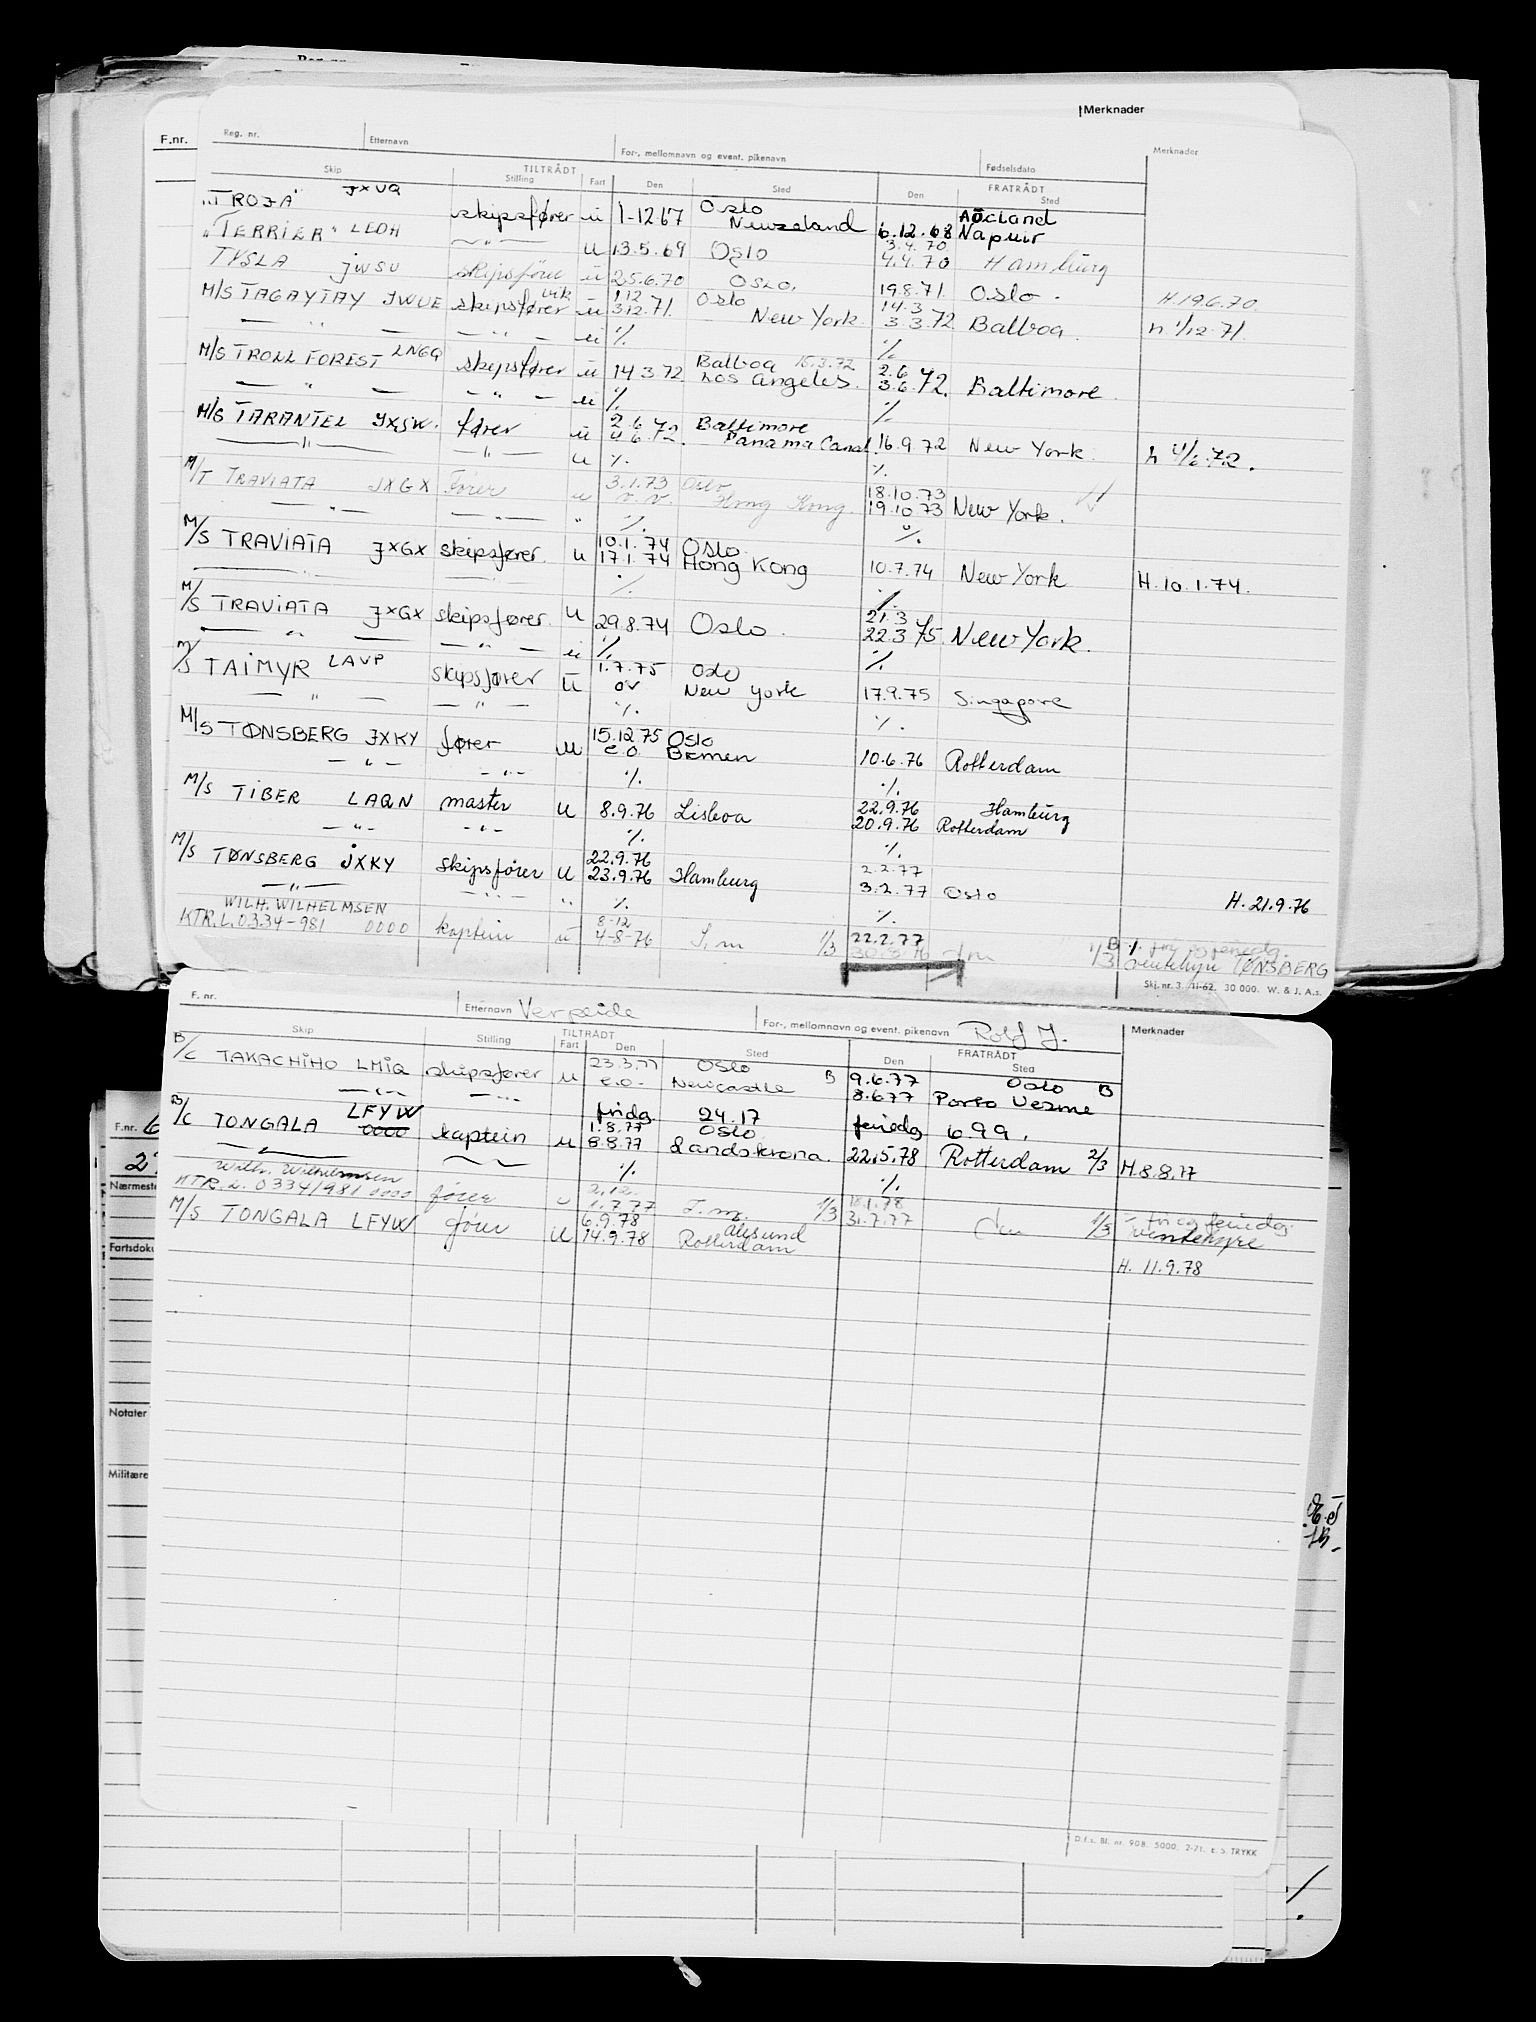 Merknader
F.nr.
Reg. nr. Etternavn For-, mellomnavn og event. pikenavn Fødselsdato Merknader
Skip TILTRÅDT FRATRÅDT
Stilling Fart Den Sted Den Sted
"TROJA" JXUQ skipsfører u 1-12.67 Oslo Newzealand 6.12.68 Aucland Napuir
"TERRIER" LEOH - " - u 13.5.69 Oslo 3.4.70 4.4.70 Hamburg
TYSLA JWSU skipsfører u 25.6.70 Oslo. 19.8.71. Oslo. H.19.6.70.
M/S TAGAYTAY JWUE skipsfører u 1.12 3.12.71. Oslo New York 14.3 3.3.72 Balboa. h 1/12.71.
- " - - " - u %. %.
M/S TROLL FOREST LNGQ skipsfører u 14.3.72 Balboa 15.3.72 Los Angeles. 2.6 3.6.72. Baltimore.
- " - - " - u %. %.
M/S TARANTEL JXSW. fører u 2.6.72 Baltimore Panama Canal. 16.9.72 New York. h
- " - - " - u %. %.
M/T TRAVIATA JXGX Fører u 3.1.73 Oslo Hong Kong. 18.10.73 19.10.73 New York. H
- " - - " - " %. %.
M/S TRAVIATA JXGX skipsfører. u 10.1.74 17.1.74 Oslo Hong Kong 10.7.74 New York H.10.1.74.
%. %.
M/S TRAVIATA JXGX skipsfører. u 29.8.74 Oslo. 21.3 22.3.75. New York.
- " - - " - u %. %.
M/S TAIMYR LAVP skipsfører u 1.7.75 Oslo New York 17.9.75 Singapore
- " - - " - %. %.
M/S TØNSBERG JXKY fører u 15.12.75 e.o. Oslo Bemen 10.6.76 Rotterdam
- " - - " - %. %.
M/S TIBER LAQN master u 8.9.76 Lisboa 22.9.76 20.9.76 Hamburg Rotterdam
- " - - " - %. %.
M/S TØNSBERG JXKY skipsfører u 22.9.76 23.9.76 Hamburg 2.2.77 3.2.77 Oslo H. 21.9.76
- " - - " - " %. %.
WILH. WILHELMSEN
KTR.L.0334-981 0000 kaptein u 8-12 4-8-76 1/3 22.2.77 1/3 TØNSBERG
Skj. nr. 3. 11-62. 30 000. W. & J. A.s.
F. nr. Etternavn Verpeide For-, mellomnavn og event. pikenavn Rolf J. Merknader
Skip TILTRÅDT FRATRÅDT
Stilling Fart Den Sted Den Sted
B/C TAKACHIHO LMIQ skipsfører u 23.3.77 e.o. Oslo Newcastle B 9.6.77 8.6.77 Oslo Porto Vesme B
- " - - " - feriedg. 24.17 feriedg 6.99.
B/C TONGALA LFYW 0000 kaptein u 1.8.77 8.8.77 Oslo Landskrona. 22.5.78 Rotterdam 2/3 H.8.8.77
%. %.
Wilh. Wilhelmsen
KTR.L. 0334/981 0000 fører u 1.7.77 1/3 18.1.78 31.7.77 1/3 feriedg.
M/S TONGALA LFYW fører u 6.9.78 14.9.78 Ålesund Rotterdam ventehyre
H. 11.9.78
F.nr. 6
Nærmeste
Fartsdoku
Notater
Militære
D.f.s. Bl. nr. 908. 5000. 2-71. E. S. TRYKK